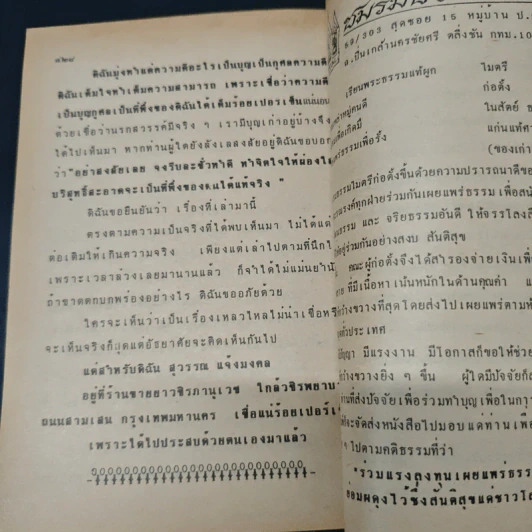 ๑๒๘
ดิฉันมุ่งหาแต่ความดีอะไรเป็นบุญเป็นกุศลความดี
ดิฉันเต็มใจทำเต็มความสามารถ เพราะเชื่อว่าความดี
เป็นบุญกุศลเป็นที่พึ่งของดิฉันได้เต็มร้อยเปอร์เซ็นแน่นอน
ด้วยเชื่อว่านรกสวรรค์มีจริง ๆ เรามีบุญเก่าอยู่บ้างจึง
ได้ไปเห็นมา หากท่านผู้ใดยังลังเลสงสัยอยู่ดิฉันขอบอก
ว่า "อย่าสงสัยเลย จงรีบละชั่วทำดี ทำจิตใจให้ผ่องใส
บริสุทธิ์สะอาดจะเป็นที่พึ่งของตนได้แท้จริง "
ดิฉันขอยืนยันว่า เรื่องที่เล่ามานี้
ตรงตามความเป็นจริงที่ได้พบเห็นมา ไม่ได้แต่ง
ต่อเติมให้เกินความจริง เพียงแต่เล่าไปตามที่นึกได้
เพราะเวลาล่วงเลยมานานแล้ว ก็จำได้ไม่แม่นยำนัก
ถ้าขาดตกบกพร่องอย่างไร ดิฉันขออภัยด้วย
ใครจะเห็นว่าเป็นเรื่องเหลวไหลไม่น่าเชื่อหรือ
จะเห็นจริงก็สุดแต่อัธยาศัยจะคิดเห็นกันไป
แต่สำหรับดิฉัน สุวรรณ แจ้งมงคล
อยู่ที่ร้านขายยาวชิรภานุเวช ใกล้วชิรพยาบาล
ถนนสามเสน กรุงเทพมหานคร เชื่อแน่ร้อยเปอร์เซ็น
เพราะได้ไปประสบด้วยตนเองมาแล้ว
ชมรม
59/303 สุดซอย 15 หมู่บ้าน ป.
ถ.ปิ่นเกล้านครชัยศรี ตลิ่งชัน กทม.10
เรียนพระธรรมแท้ผูก ไมตรี
ก่อตั้ง
ในสัตย์ ธ
เกิดมี แก่นแท้
เผยแพร่ธรรมเพื่อรั้ง (ของเก่า
ธรรมไมตรีก่อตั้งขึ้นด้วยความปรารถนาดีของ
ร่วมกันเผยแพร่ธรรม เพื่อสนั
ธรรม และ จริยธรรมอันดี ให้จรรโลงถึง
อยู่ร่วมกันอย่างสงบ สันติสุข
คณะผู้ก่อตั้งจึงได้สำรองจ่ายเงินเพื่อ
ที่มีเนื้อหา เน้นหนักในด้านคุณค่า แ
กว้างขวางที่สุดโดยส่งไป เผยแพร่ตามห้อ
ทั่วประเทศ
มีแรงงาน มีโอกาสก็ขอให้ช่วย
กว้างขวางยิ่ง ๆ ขึ้น ผู้ใดมีปัจจัยก็ด
ท่านที่ส่งปัจจัย เพื่อร่วมทำบุญ เพื่อในการ
จะจัดส่งหนังสือไปมอบแด่ท่าน เพื่อ
ๆ ไปตามคติธรรมที่ว่า
"ร่วมแรงลงทุนเผยแพร่ธรรม
ย่อมผดุงไว้ซึ่งสันติสุขแด่ชาวโล